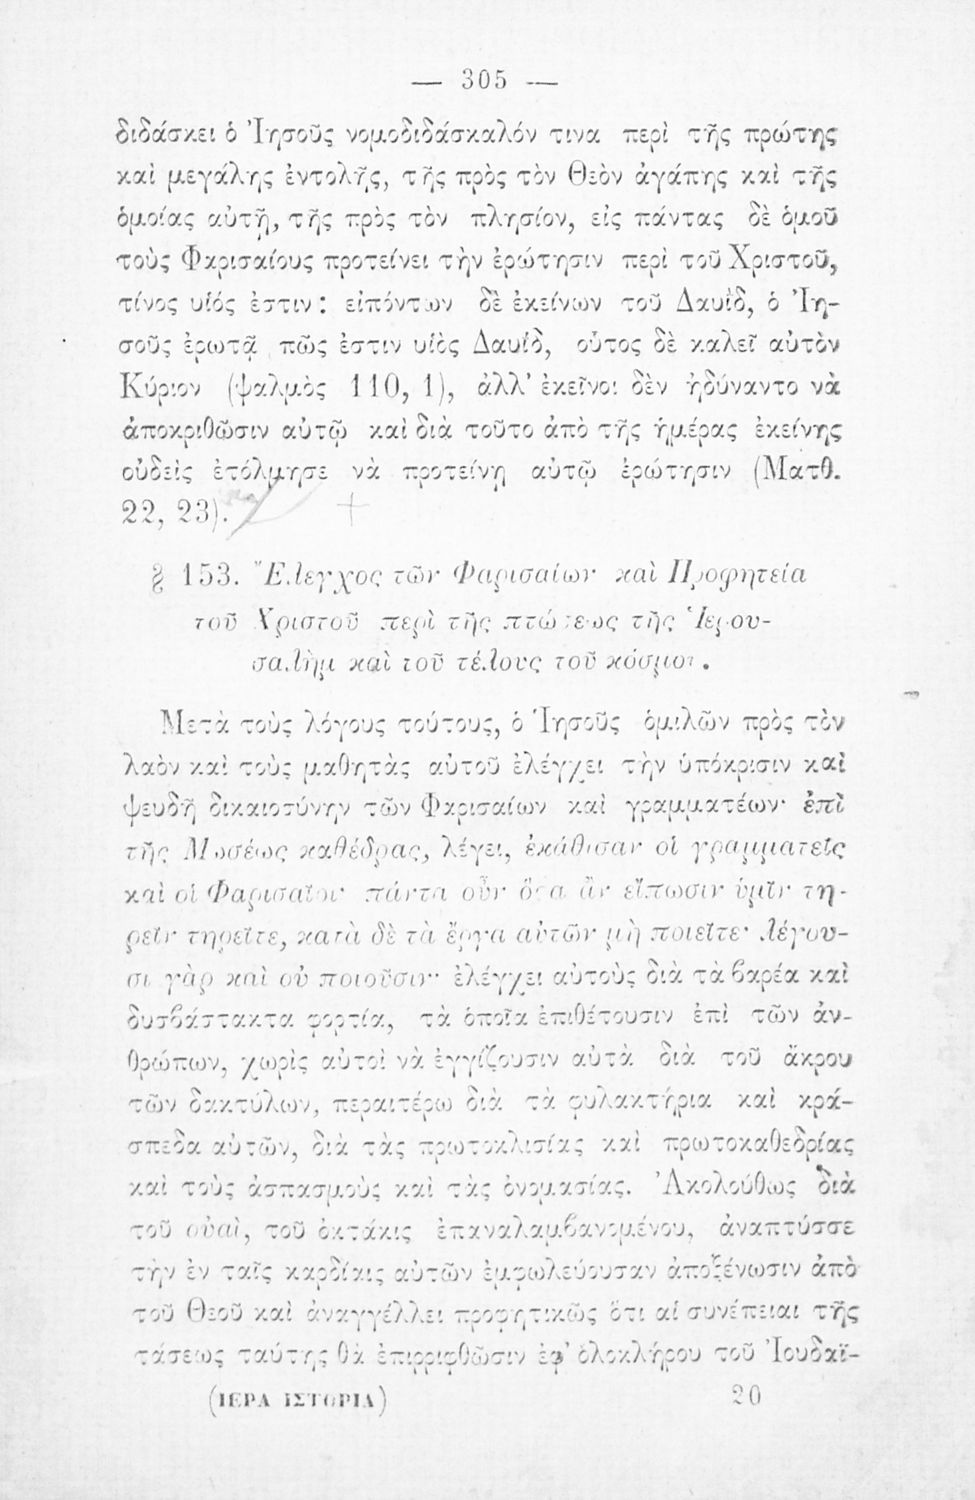 — 305 —
διδάσκει ὁ Ἰησοῦς νομοδιδάσκαλόν τινα περὶ τῆς πρώτης
καὶ μεγάλης ἐντολῆς, τῆς πρὸς τὸν Θεὸν ἀγάπης καὶ τῆς
ὁμοίας αὐτῇ, τῆς πρὸς τὸν πλησίον, εἰς πάντας δὲ ὁμοῦ
τοὺς Φαρισαίους προτείνει τὴν ἐρώτησιν περὶ τοῦ Χριστοῦ,
τίνος υἱός ἐστιν: εἰπόντων δὲ ἐκείνων τοῦ Δαυῒδ, ὁ Ἰη-
σοῦς ἐρωτᾷ πῶς ἐστιν υἱὸς Δαυΐδ, οὗτος δὲ καλεῖ αὐτὸν
Κύριον (ψαλμὸς 110, 1), ἀλλ’ ἐκεῖνοι δὲν ἠδύναντο νὰ
ἀποκριθῶσιν αὐτῷ καὶ διὰ τοῦτο ἀπὸ τῆς ἡμέρας ἐκείνης
οὐδεὶς ἐτόλμησε νὰ προτείνῃ αὐτῷ ἐρώτησιν (Ματθ.
22, 23).
§ 153. Ἔλεγχος τῶν Φαρισαίων καὶ Προφητεία
τοῦ Χριστοῦ περὶ τῆς πτώσεως τῆς Ἱερου-
σαλὴμ καὶ τοῦ τέλους τοῦ κόσμου.
Μετὰ τοὺς λόγους τούτους, ὁ Ἰησοῦς ὁμιλῶν πρὸς τὸν
λαὸν καὶ τοὺς μαθητὰς αὐτοῦ ἐλέγχει τὴν ὑπόκρισιν καὶ
ψευδῆ δικαιοσύνην τῶν Φαρισαίων καὶ γραμματέων· ἐπὶ
τῆς Μωσέως καθέδρας, λέγει, ἐκάθισαν οἱ γραμματεῖς
καὶ οἱ Φαρισαῖοι· πάντα οὖν ὅσα ἂν εἴπωσιν ὑμῖν τη-
ρεῖν τηρεῖτε, κατὰ δὲ τὰ ἔργα αὐτῶν μὴ ποιεῖτε· λέγου-
σι γὰρ καὶ οὐ ποιοῦσιν· ἐλέγχει αὐτοὺς διὰ τὰ βαρέα καὶ
δυσβάστακτα φορτία, τὰ ὁποῖα ἐπιθέτουσιν ἐπὶ τῶν ἀν-
θρώπων, χωρὶς αὐτοὶ νὰ ἐγγίζουσιν αὐτὰ διὰ τοῦ ἄκρου
τῶν δακτύλων, περαιτέρω διὰ τὰ φυλακτήρια καὶ κρά-
σπεδα αὐτῶν, διὰ τὰς πρωτοκλισίας καὶ πρωτοκαθεδρίας
καὶ τοὺς ἀσπασμοὺς καὶ τὰς ὀνομασίας. Ἀκολούθως διὰ
τοῦ οὐαὶ, τοῦ ὀκτάκις ἐπαναλαμβανομένου, ἀναπτύσσε
τὴν ἐν ταῖς καρδίαις αὐτῶν ἐμφωλεύουσαν ἀποξένωσιν ἀπὸ
τοῦ Θεοῦ καὶ ἀναγγέλλει προφητικῶς ὅτι αἱ συνέπειαι τῆς
τάσεως ταύτης θὰ ἐπιρριφθῶσιν ἐφ’ ὁλοκλήρου τοῦ Ἰουδαϊ-
(ΙΕΡΑ ΙΣΤΟΡΙΑ) 20